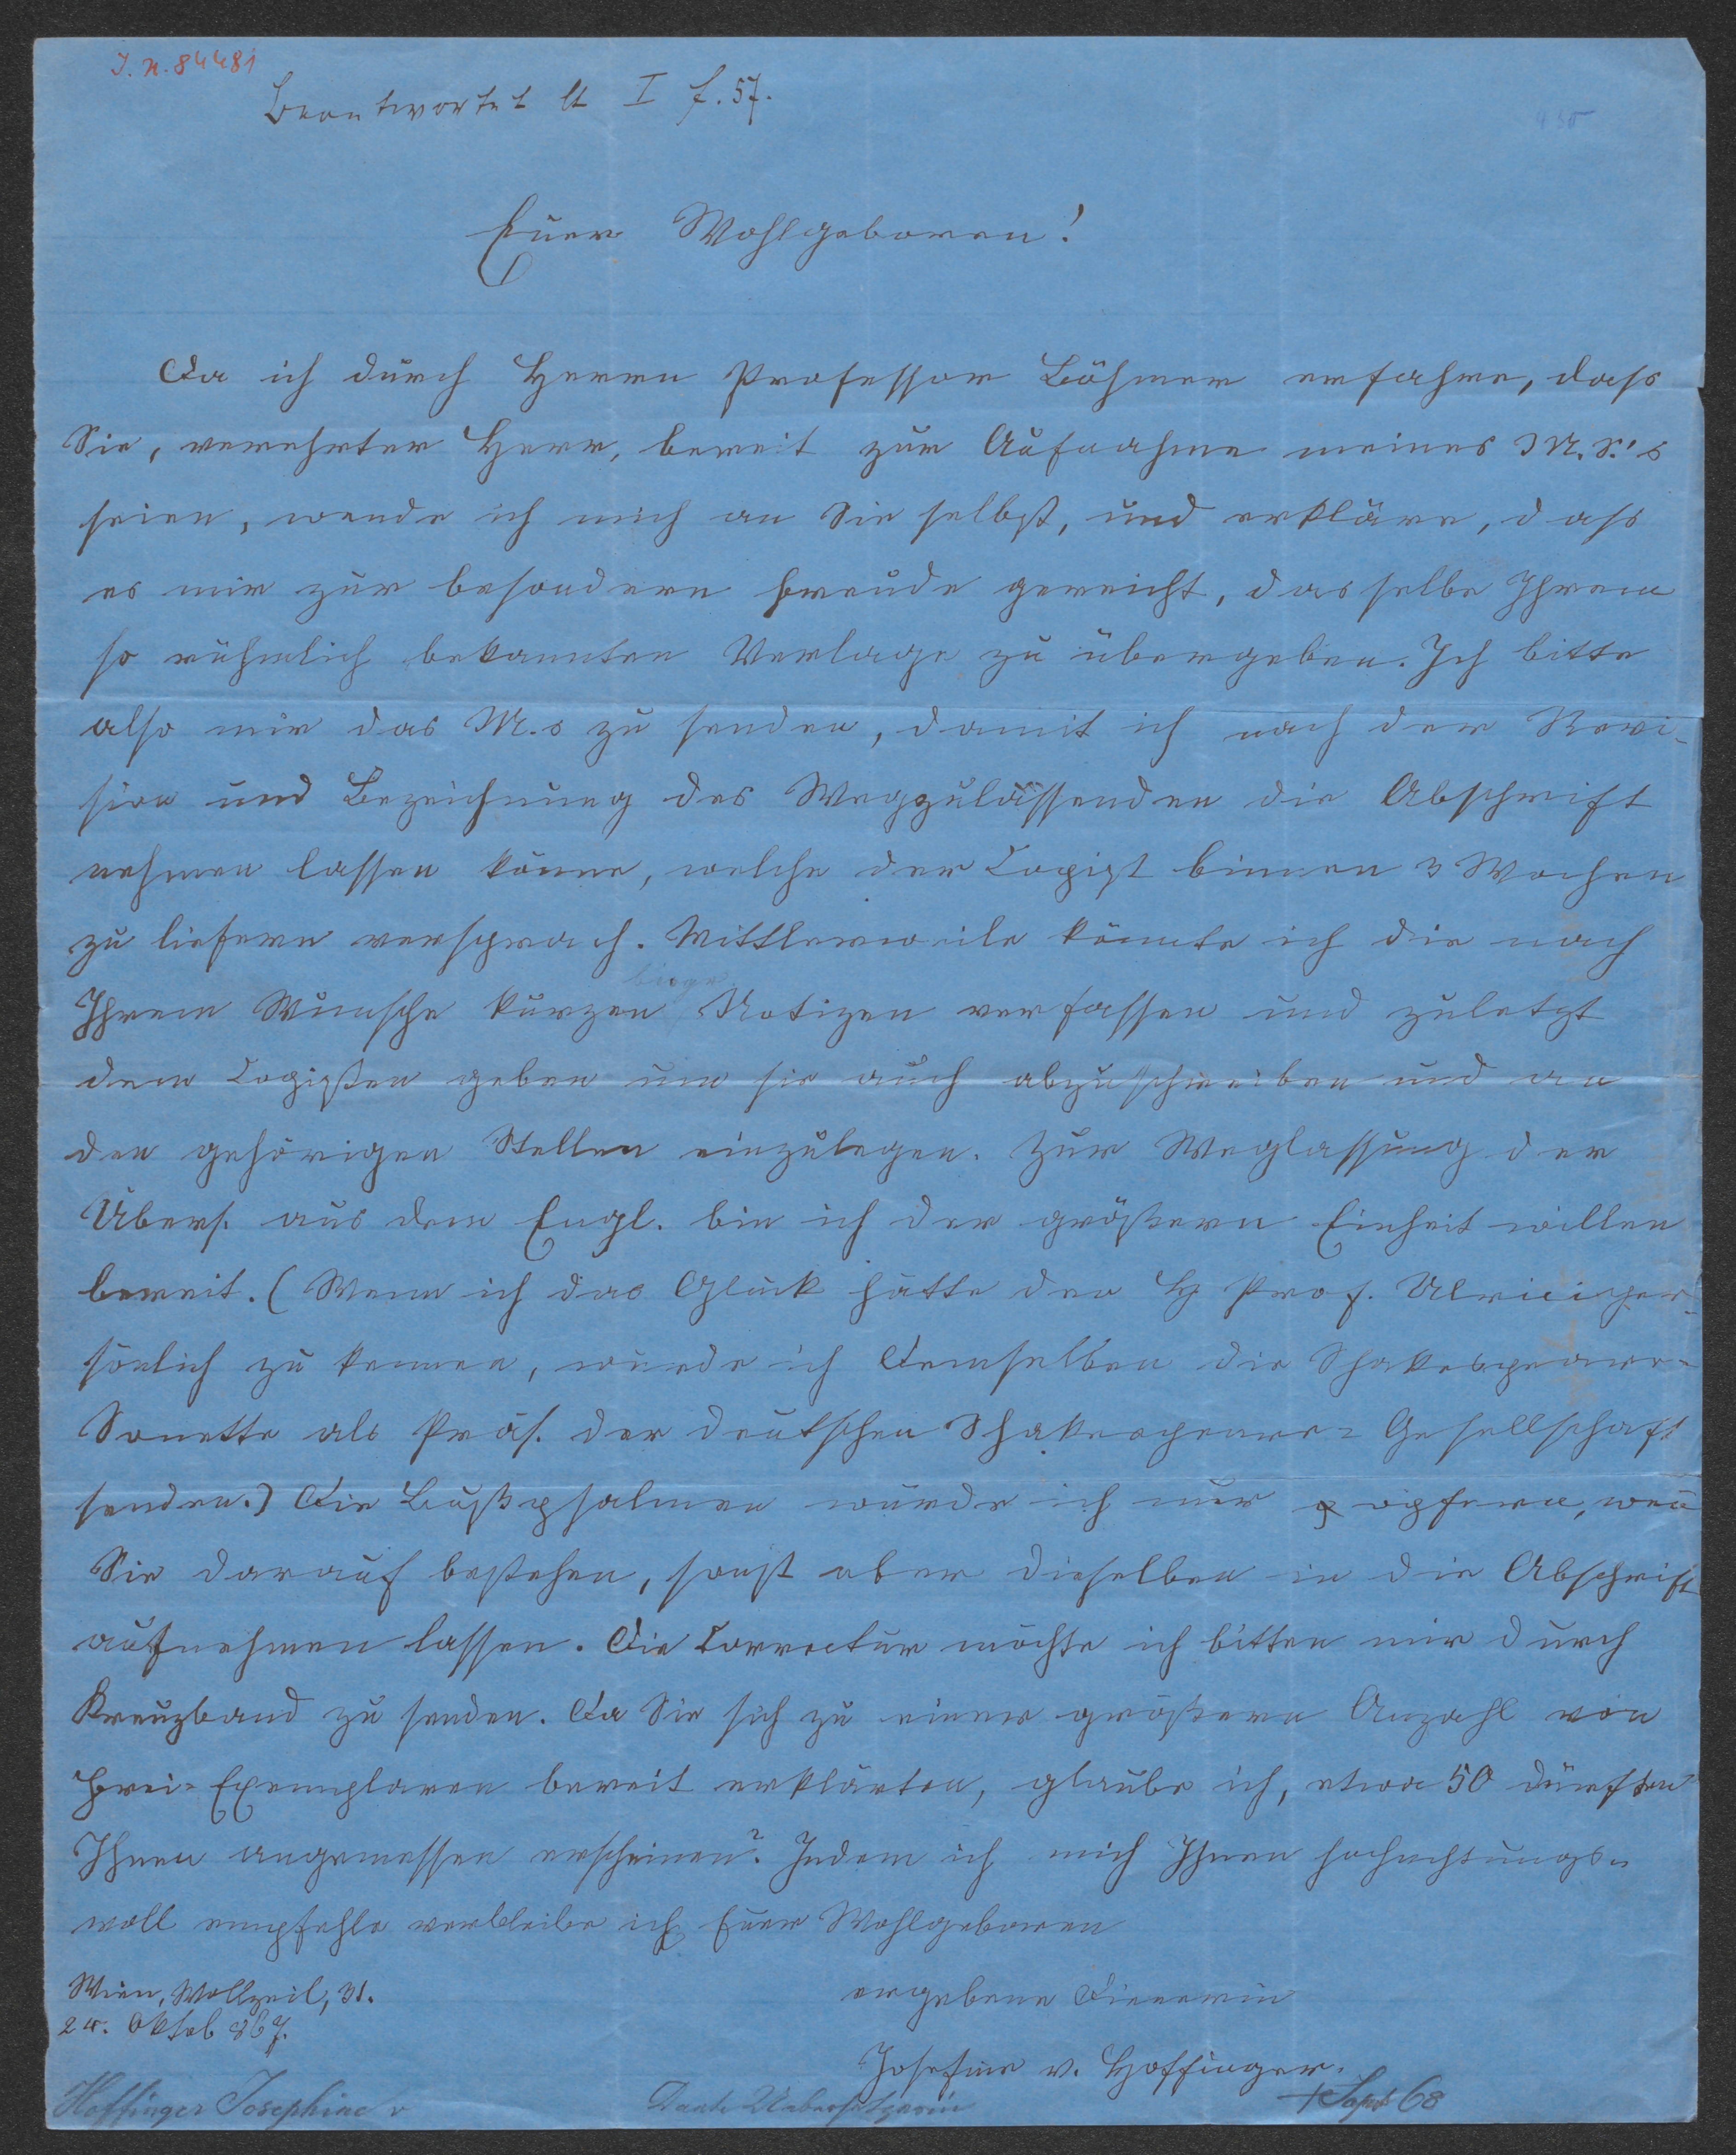 I. N. 84481
Beantwortet lt I f. 57.
Euer Wohlgeboren!
Da ich durch Herrn Professor Böhmer erfahre, dass
Sie, verehrter Herr, bereit zur Aufnahme meines M. S.'s
seien, wende ich mich an Sie selbst, und erkläre, dass
es mir zur besondern Freude gereicht, dasselbe Ihrem
so rühmlich bekannten Verlage zu übergeben. Ich bitte
also mir das M.s zu senden, damit ich nach der Revi-
sion und Bezeichnung des Wegzulassenden die Abschrift
nehmen lassen könne, welche der Copist binnen 3 Wochen
zu liefern versprach. Mittlerweile könnte ich die nach
Ihrem Wunsche kurzen Notizen verfassen und zuletzt
dem Copisten geben um sie auch abzuschreiben und an
den gehörigen Stellen einzulegen. Zur Weglassung der
Übers. aus dem Engl. bin ich der größern Einheit willen
bereit. (Wenn ich das Glück hätte den H Prof. Ulrici per-
sönlich zu kennen, würde ich Demselben die Shakespeare-
Sonette als Präs. der deutschen Shakespeare= Gesellschaft
senden.) Die Bußpsalmen würde ich nur opfern, weñ
Sie darauf bestehen, sonst aber dieselben in die Abschrift
aufnehmen lassen. Die Correctur möchte ich bitten mir durch
Kreuzband zu senden. Da Sie sich zu einer größern Anzahl von
Frei=Exemplaren bereit erklärten, glaube ich, etwa 50 dürften
Ihnen angemessen erscheinen? Indem ich mich Ihnen hochachtungs=
voll empfehle verbleibe ich Euer Wohlgeboren
Wien, Wollzeil, 31.
ergebene Dienerin
24. Oktob 867.
Josefine v. Hoffinger.
Hoffinger Josephine v
Dante Uebersetzerin
+ Sept 68